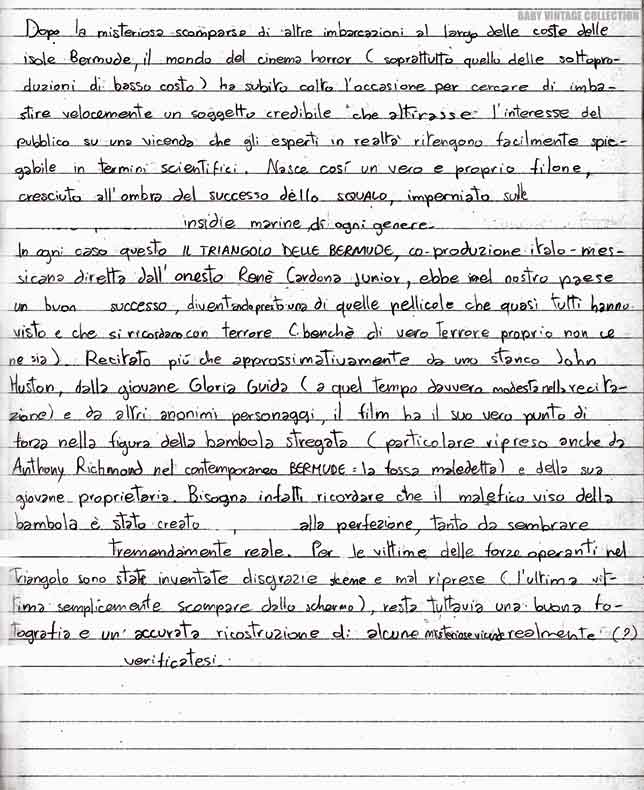 BABY VINTAGE COLLECTION
Dopo la misteriosa scomparsa di altre imbarcazioni al largo delle coste delle
isole Bermude, il mondo del cinema horror (soprattutto quello delle sottopro-
duzioni di basso costo) ha subito colto l'occasione per cercare di imba-
stire velocemente un soggetto credibile che attirasse l'interesse del
pubblico su una vicenda che gli esperti in realtà ritengono facilmente spie-
gabile in termini scientifici. Nasce così un vero e proprio filone,
cresciuto all'ombra del successo dello SQUALO, imperniato sulle
insidie marine di ogni genere.
In ogni caso questo IL TRIANGOLO DELLE BERMUDE, co-produzione italo-mes-
sicana diretta dall'onesto Renè Cardona Junior, ebbe nel nostro paese
un buon successo, diventando presto una di quelle pellicole che quasi tutti hanno
visto e che si ricordano con terrore (benchè di vero terrore proprio non ce
ne sia). Recitato più che approssimativamente da uno stanco John
Huston, dalla giovane Gloria Guida (a quel tempo davvero modesta nella recita-
zione) e da altri anonimi personaggi, il film ha il suo vero punto di
forza nella figura della bambola stregata (particolare ripreso anche da
Anthony Richmond nel contemporaneo BERMUDE: la fossa maledetta) e della sua
giovane proprietaria. Bisogna infatti ricordare che il malefico viso della
bambola è stato creato , alla perfezione, tanto da sembrare
tremendamente reale. Per le vittime delle forze operanti nel
Triangolo sono state inventate disgrazie sceme e mal riprese (l'ultima vit-
tima semplicemente scompare dallo schermo), resta tuttavia una buona fo-
tografia e un'accurata ricostruzione di alcune misteriose vicende realmente (?)
verificatesi.